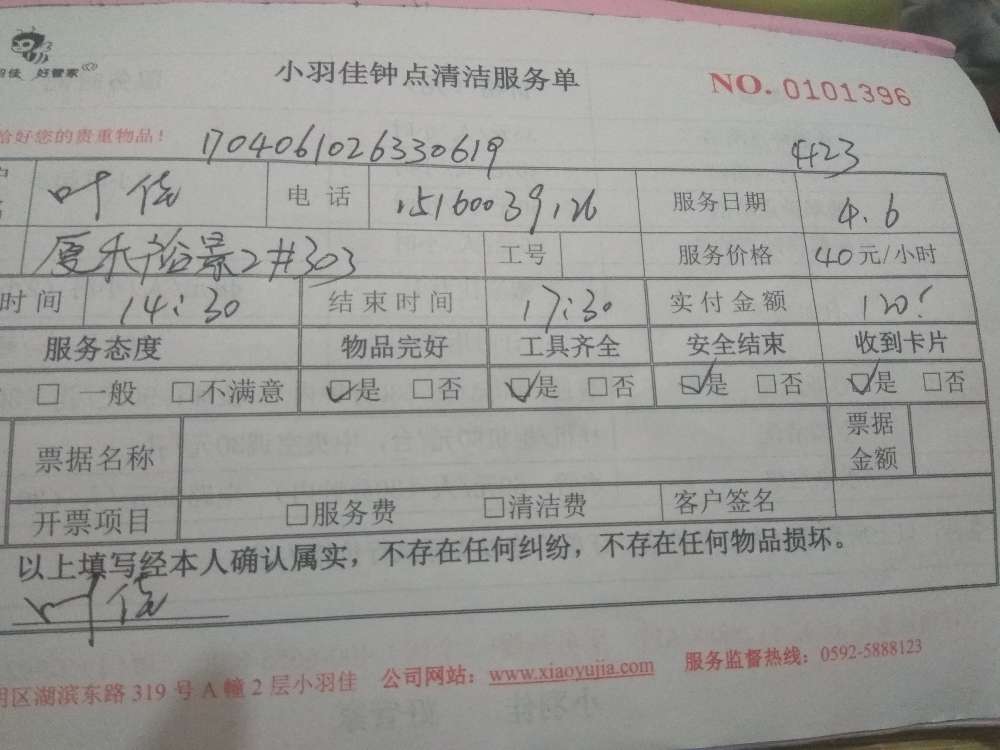 好管家
小羽佳钟点清洁服务单
NO. 0101396
给好您的贵重物品！
1704061026330619
4123
叶佳 电 话 15160039126 服务日期 4.6
厦禾裕景2#303 工号 服务价格 40元/小时
时 间 14:30 结 束 时 间 17:30 实 付 金 额 120
服务态度 物品完好 工具齐全 安全结束 收到卡片
□ 一般 □不满意 ☑是 □否 ☑是 □否 ☑是 □否 ☑是 □否
票据名称 票据金额
开票项目 □服务费 □清洁费 客户签名
以上填写经本人确认属实，不存在任何纠纷，不存在任何物品损坏。
叶佳
明区湖滨东路 319 号 A 幢 2 层小羽佳 公司网站：www.xiaoyujia.com 服务监督热线：0592-5888123